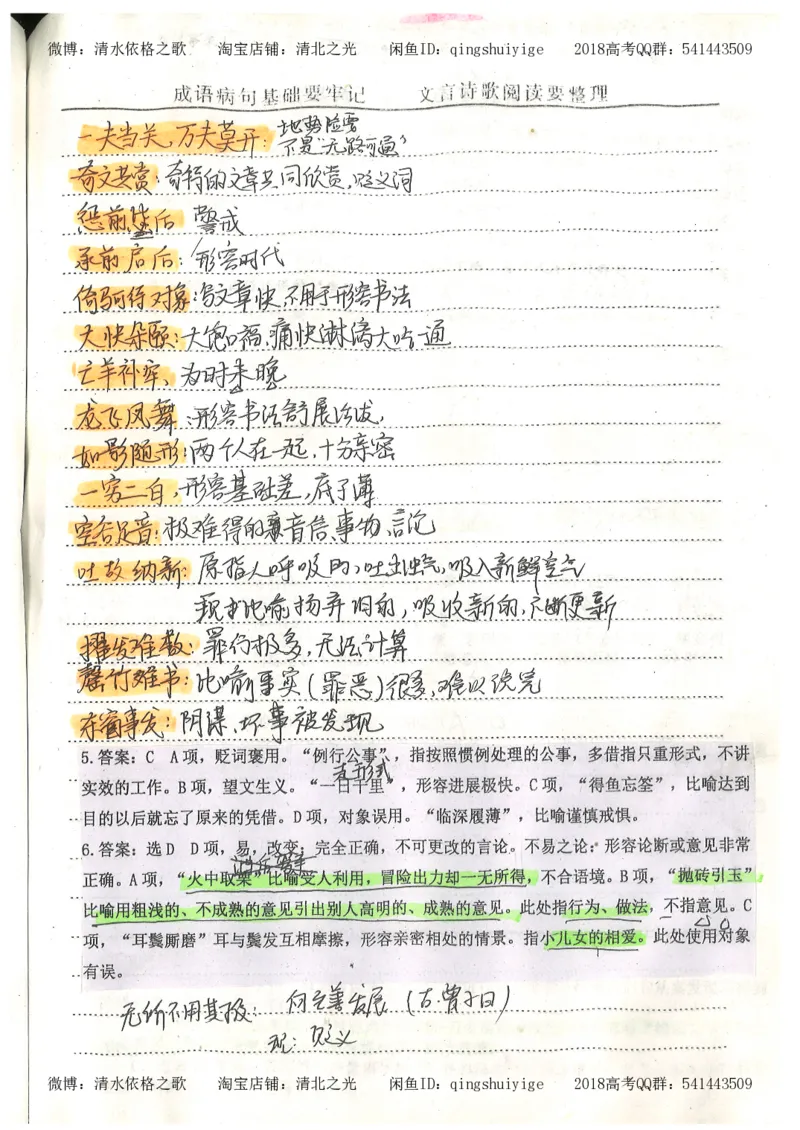 微博：清水依格之歌 淘宝店铺：清北之光 闲鱼ID：qingshuiyige 2018高考QQ群：541443509
成语病句基础要牢记 文言诗歌阅读要整理
一夫当关，万夫莫开：地势险要
不是“无路可通”
奇文共赏：奇特的文章共同欣赏，贬义词
惩前毖后 警戒
承前启后：形容时代
倚马可待 对象：写文章快，不用于形容书法
大快朵颐：大饱口福，痛快淋漓大吃一通
亡羊补牢，为时未晚
龙飞凤舞：形容书法舒展活泼，
如影随形：两个人在一起，十分亲密
一穷二白，形容基础差，底子薄
空谷足音：极难得的音信、事物、言论
吐故纳新：原指人呼吸时，吐出浊气，吸入新鲜空气
现 比喻扬弃旧的，吸收新的，不断更新
擢发难数：罪行极多，无法计算
罄竹难书：比喻事实（罪恶）很多，难以说完
东窗事发：阴谋、坏事被发现
5.答案：C A项，贬词褒用。“例行公事”，指按照惯例处理的公事，多借指只重形式，不讲
重形式
实效的工作。B项，望文生义。“一日千里”，形容进展极快。C项，“得鱼忘筌”，比喻达到
目的以后就忘了原来的凭借。D项，对象误用。“临深履薄”，比喻谨慎戒惧。
6.答案：选D D项，易，改变；完全正确，不可更改的言论。不易之论：形容论断或意见非常
正确。A项，“火中取栗”比喻受人利用，冒险出力却一无所得，不合语境。B项，“抛砖引玉”
比喻用粗浅的、不成熟的意见引出别人高明的、成熟的意见。此处指行为、做法，不指意见。C
项，“耳鬓厮磨”耳与鬓发互相摩擦，形容亲密相处的情景。指小儿女的相爱。此处使用对象
有误。
无所不用其极：向完善发展（古：曾子曰）
现：贬义
微博：清水依格之歌 淘宝店铺：清北之光 闲鱼ID：qingshuiyige 2018高考QQ群：541443509